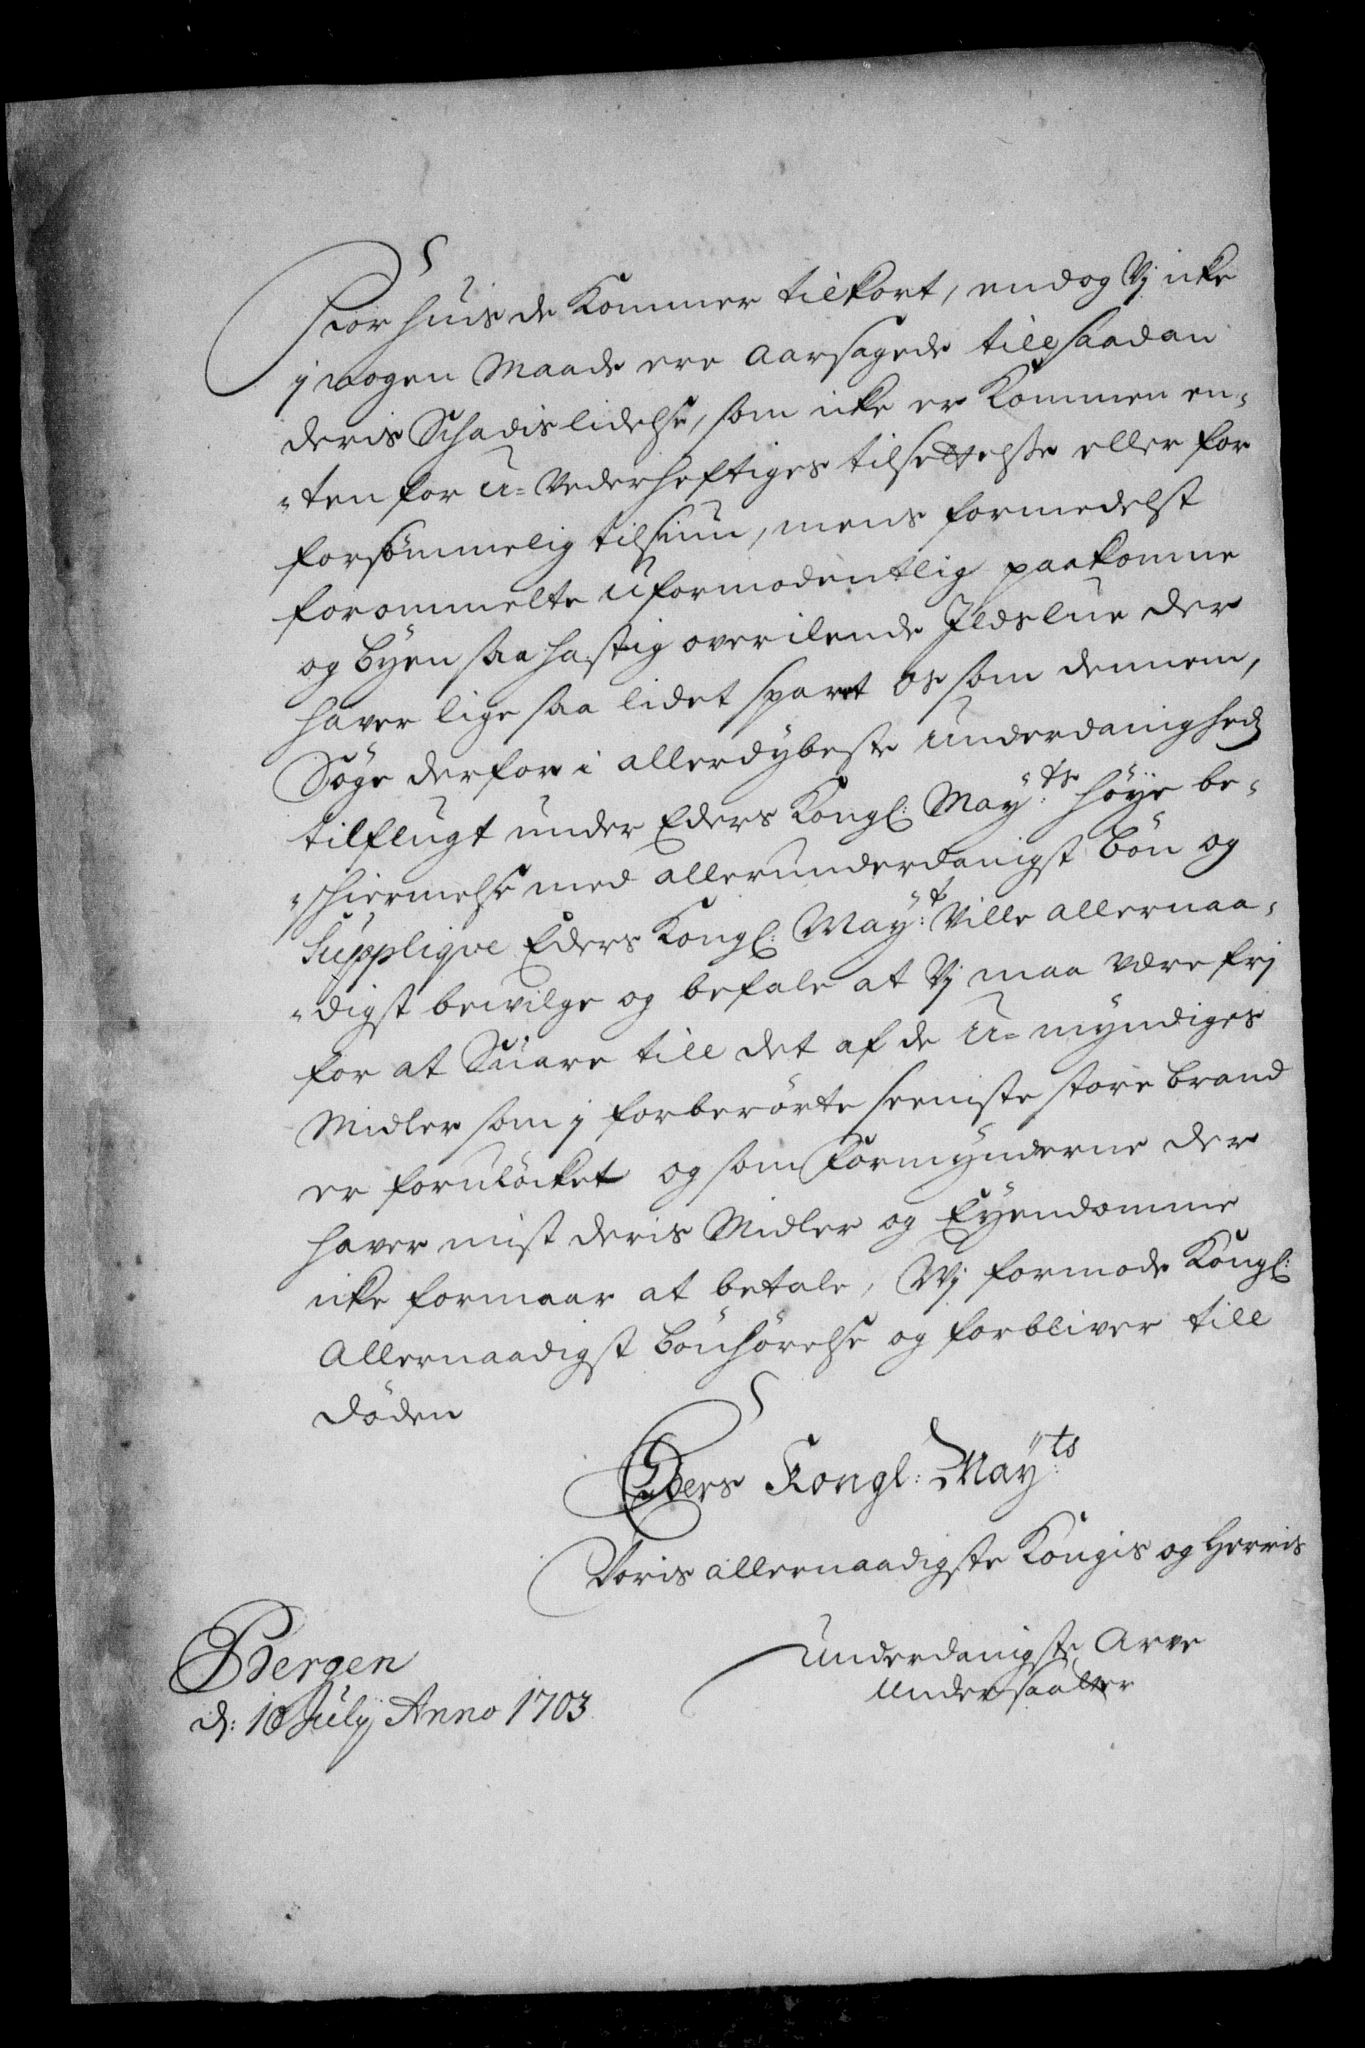 For huis de Kommer tilkort, endog Vj icke
j nogen Maade ere Aarsagede till saadan
deris Schadislidelse, som icke er Kommen en-
-ten for U=vederheftiges tilsettelsse eller for
forsömmelig tilsiun, mens formedelst
forommelte Uformodentlig paakomne
og byen saa hastig overilende Ildslue der
haver lige saa lidet sparet os som dennem,
Söge derfor i allerdybeste Underdanighed
tilflugt under Eders Kongl: May:ts höye be-
-schiermelse med allerunderdanigst bön og
Supplique Eders Kongl: May:t Ville allernaa-
-digst bevilge og befale at Vj maa være frj
for at Suare till det af de U=myndiges
Midler som j forberörte seeniste store brand
er foruløcket og som Formynderne der
haver mist deris Midler og Eyendomme
icke formaar at betale, Wj formode Kongl:
Allernaadigst bönhörelse og forbliver till
döden
Eders Kongl: May:ts
Voris allernaadigste Kongis og Herris
Underdanigste Arve
Undersaatter
Bergen
d: 10 July Anno 1703